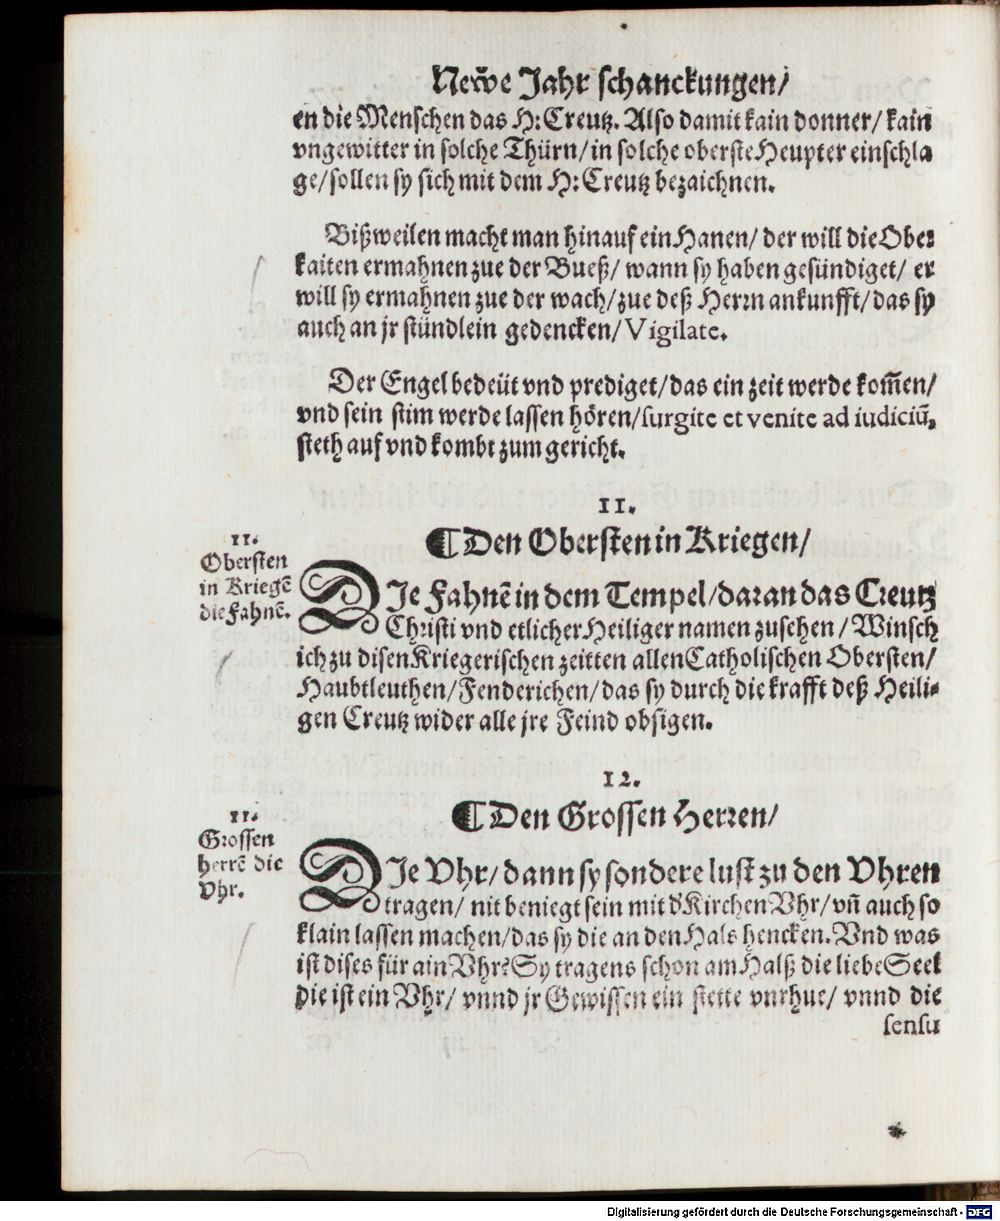 Newe Jahr schanckungen/
en die Menschen das H: Creutz. Also damit kain donner/ kain
vngewitter in solche Thürn/ in solche oberste Heupter einschla
ge/ sollen sy sich mit dem H: Creutz bezaichnen.
Bißweilen macht man hinauf ein Hanen/ der will die Ober
kaiten ermahnen zue der Bueß/ wann sy haben gesündiget/ er
will sy ermahnen zue der wach/ zue deß Herrn ankunfft/ das sy
auch an jr stündlein gedencken/ Vigilate.
Der Engel bedeüt vnd prediget/ das ein zeit werde kom̃en/
vnd sein stim werde lassen hören/ surgite et venite ad iudiciū,
steth auf vnd kombt zum gericht.
11.
¶ Den Obersten in Kriegen/
11.
Obersten
in Kriegē
die Fahnē.
DIe Fahnē in dem Tempel/ daran das Creutz
Christi vnd etlicher Heiliger namen zusehen/ Winsch
ich zu disen Kriegerischen zeitten allen Catholischen Obersten/
Haubtleuthen/ Fenderichen/ das sy durch die krafft deß Heili-
gen Creutz wider alle jre Feind obsigen.
12.
¶ Den Grossen Herren/
11.
Grossen
herrē die
Vhr.
DIe Vhr/ dann sy sondere lust zu den Vhren
tragen/ nit beniegt sein mit d' Kirchen Vhr/ vñ auch so
klain lassen machen/ das sy die an den Hals hencken. Vnd was
ist dises für ain Vhr? Sy tragens schon am Halß die liebe Seel
die ist ein Vhr/ vnnd jr Gewissen ein stette vnrhue/ vnnd die
sensu
Digitalisierung gefördert durch die Deutsche Forschungsgemeinschaft - DFG